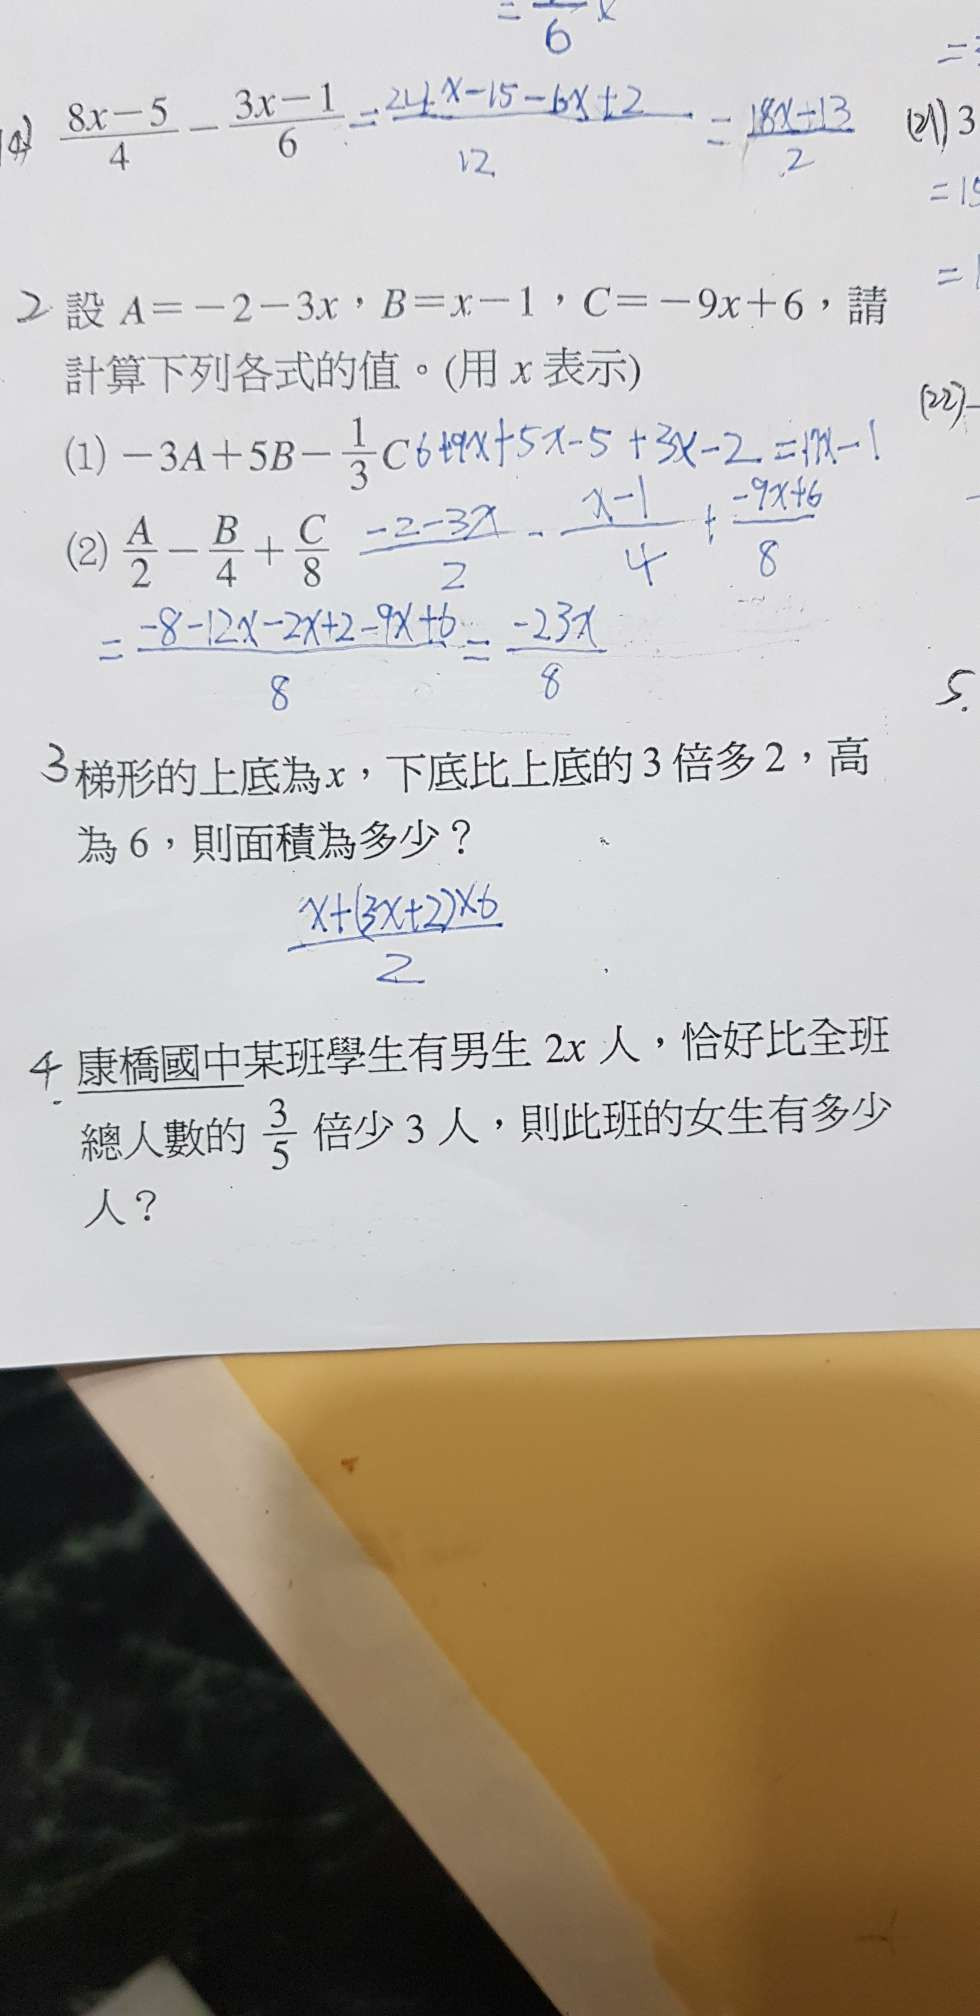 = —/6 x
(8x-5)/4 - (3x-1)/6 = (24x-15-6x+2)/12 = (18x-13)/2
(21) 3
= 15
2 設 A=-2-3x，B=x-1，C=-9x+6，請
計算下列各式的值。(用 x 表示)
(22) -
(1) -3A+5B-1/3 C 6+9x+5x-5+3x-2=17x-1
(2) A/2 - B/4 + C/8 (-2-3x)/2 - (x-1)/4 + (-9x+6)/8
= (-8-12x-2x+2-9x+6)/8 = -23x/8
5.
3 梯形的上底為x，下底比上底的3倍多2，高
為6，則面積為多少？
(x+(3x+2)×6)/2
4. 康橋國中某班學生有男生 2x 人，恰好比全班
總人數的 3/5 倍少 3 人，則此班的女生有多少
人？